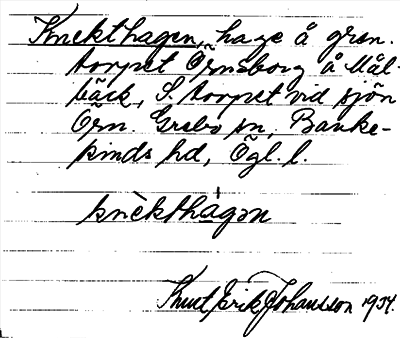 Knekthagen, hage å gren.
torpet Örnsborg å Mål-
bäck, S, torpet vid sjön
Örn. Grebo sn, Banke-
kinds hd, Ögl. l.
knèkthágən
Knut Erik Johansson 1934.